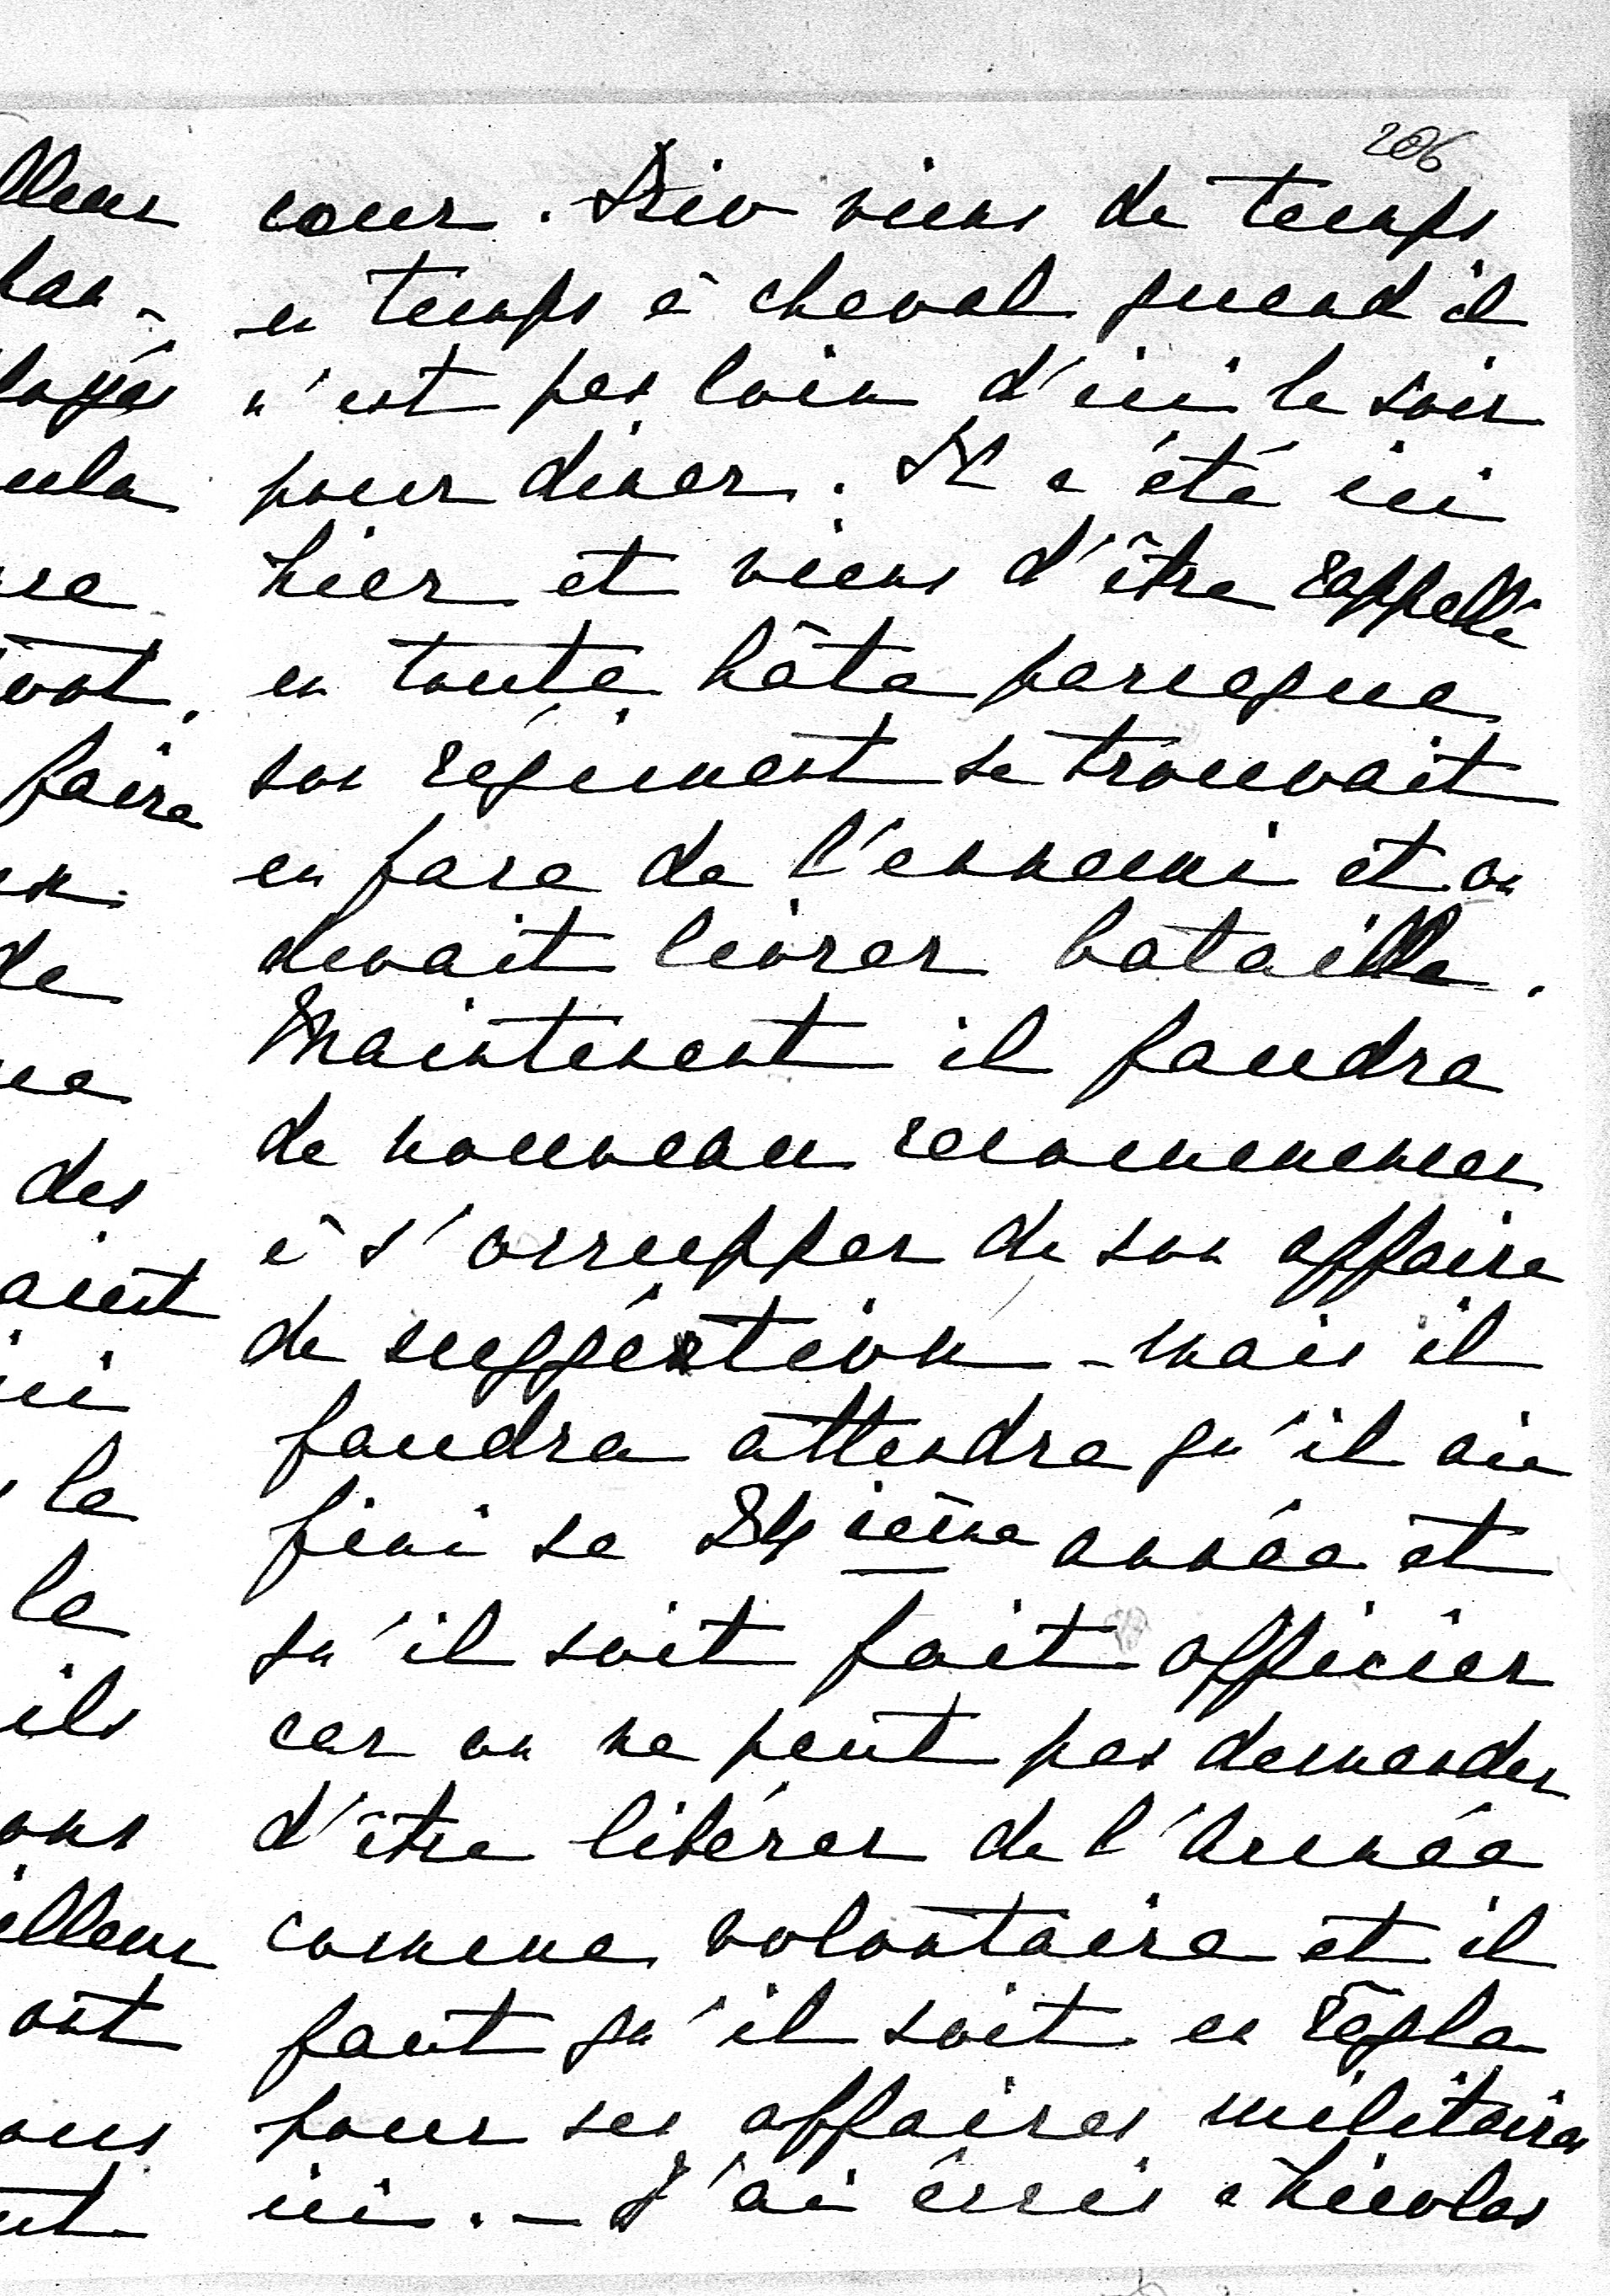 206
cour. Xiv viens de temps
en temps à cheval quand il
n'est pas loin d'ici le soir
pour diner. Il a été ici
hier et viens d'être rappellé
en toute hâte parceque
son régiment se trouvait
en face de l'ennemi et on
devait livrer bataille.
Maintenent il faudra
de nouveau recommencer
à s'occupper de son affaire
de suggéstion - mais il
faudra attendre qu'il aie
fini sa 24ième année et
qu'il soit fait officier
car on ne peut pas demander
d'être libérer de l'Armée
comme volontaire et il
faut qu'il soit en règle
pour ses affaires militaires
ici. - J'ai écris à Nicolas
lleur
han-
loyés
cula
re
vot.
faire
de
des
aient
ici
la
la
ils
ons
illeur
ont
ous